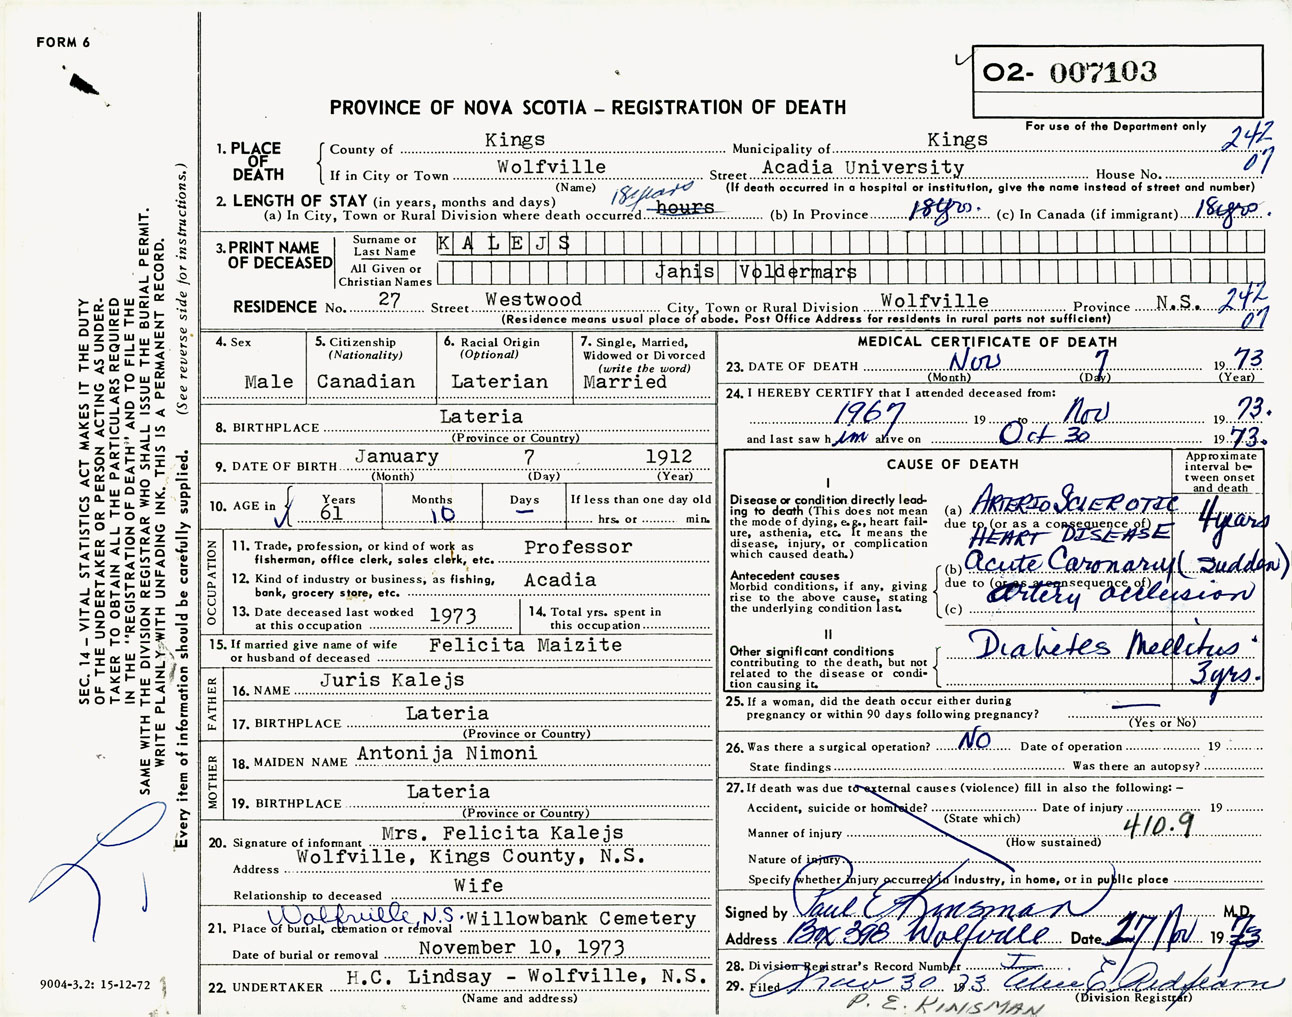 FORM 6
O2- 007103
PROVINCE OF NOVA SCOTIA – REGISTRATION OF DEATH
For use of the Department only
1. PLACE OF DEATH
County of Kings Municipality of Kings 242
If in City or Town Wolfville Street Acadia University House No. 07
(Name) (If death occurred in a hospital or institution, give the name instead of street and number)
2. LENGTH OF STAY (in years, months and days) 18 years
(a) In City, Town or Rural Division where death occurred hours (b) In Province 18 yrs. (c) In Canada (if immigrant) 18 yrs.
3. PRINT NAME OF DECEASED
Surname or Last Name KALEJS
All Given or Christian Names Janis Voldermars
RESIDENCE No. 27 Street Westwood City, Town or Rural Division Wolfville Province N.S. 242
(Residence means usual place of abode. Post Office Address for residents in rural parts not sufficient) 07
4. Sex
Male
5. Citizenship
(Nationality)
Canadian
6. Racial Origin
(Optional)
Laterian
7. Single, Married,
Widowed or Divorced
(write the word)
Married
8. BIRTHPLACE Lateria
(Province or Country)
9. DATE OF BIRTH January 7 1912
(Month) (Day) (Year)
10. AGE in
Years Months Days If less than one day old
61 10 – hrs. or min.
OCCUPATION
11. Trade, profession, or kind of work as Professor
fisherman, office clerk, sales clerk, etc.
12. Kind of industry or business, as fishing, Acadia
bank, grocery store, etc.
13. Date deceased last worked 1973
at this occupation
14. Total yrs. spent in
this occupation
15. If married give name of wife Felicita Maizite
or husband of deceased
FATHER
16. NAME Juris Kalejs
17. BIRTHPLACE Lateria
(Province or Country)
MOTHER
18. MAIDEN NAME Antonija Nimoni
19. BIRTHPLACE Lateria
(Province or Country)
20. Signature of informant Mrs. Felicita Kalejs
Address Wolfville, Kings County, N.S.
Relationship to deceased Wife
21. Place of burial, cremation or removal Wolfville, N.S. Willowbank Cemetery
Date of burial or removal November 10, 1973
22. UNDERTAKER H.C. Lindsay - Wolfville, N.S.
(Name and address)
MEDICAL CERTIFICATE OF DEATH
23. DATE OF DEATH Nov 7 19 73
(Month) (Day) (Year)
24. I HEREBY CERTIFY that I attended deceased from:
1967 19 to Nov 19 73.
and last saw him alive on Oct 30 19 73.
CAUSE OF DEATH
Approximate
interval be-
tween onset
and death
I
Disease or condition directly lead-
ing to death (This does not mean
the mode of dying, e.g., heart fail-
ure, asthenia, etc. It means the
disease, injury, or complication
which caused death.)
(a) ARTERIO SCLEROTIC
due to (or as a consequence of)
HEART DISEASE 4 years
Antecedent causes
Morbid conditions, if any, giving
rise to the above cause, stating
the underlying condition last.
(b) Acute Coronary (sudden)
due to (or as a consequence of)
artery occlusion
(c)
II
Other significant conditions
contributing to the death, but not
related to the disease or condi-
tion causing it.
Diabetes Mellitus
3 yrs.
25. If a woman, did the death occur either during
pregnancy or within 90 days following pregnancy? —
(Yes or No)
26. Was there a surgical operation? NO Date of operation 19
State findings Was there an autopsy?
27. If death was due to external causes (violence) fill in also the following: –
Accident, suicide or homicide? Date of injury 19
(State which)
Manner of injury 410.9
(How sustained)
Nature of injury
Specify whether injury occurred in Industry, in home, or in public place
Signed by Paul E Kinsman M.D.
Address Box 398 Wolfville Date 27 Nov 19 73
28. Division Registrar's Record Number
29. Filed Nov 30 1973
(Division Registrar)
P. E. KINSMAN
SEC. 14 – VITAL STATISTICS ACT MAKES IT THE DUTY
OF THE UNDERTAKER OR PERSON ACTING AS UNDER-
TAKER TO OBTAIN ALL THE PARTICULARS REQUIRED
IN THE "REGISTRATION OF DEATH" AND TO FILE THE
SAME WITH THE DIVISION REGISTRAR WHO SHALL ISSUE THE BURIAL PERMIT.
WRITE PLAINLY WITH UNFADING INK. THIS IS A PERMANENT RECORD.
Every item of information should be carefully supplied. (See reverse side for instructions.)
9004-3.2: 15-12-72